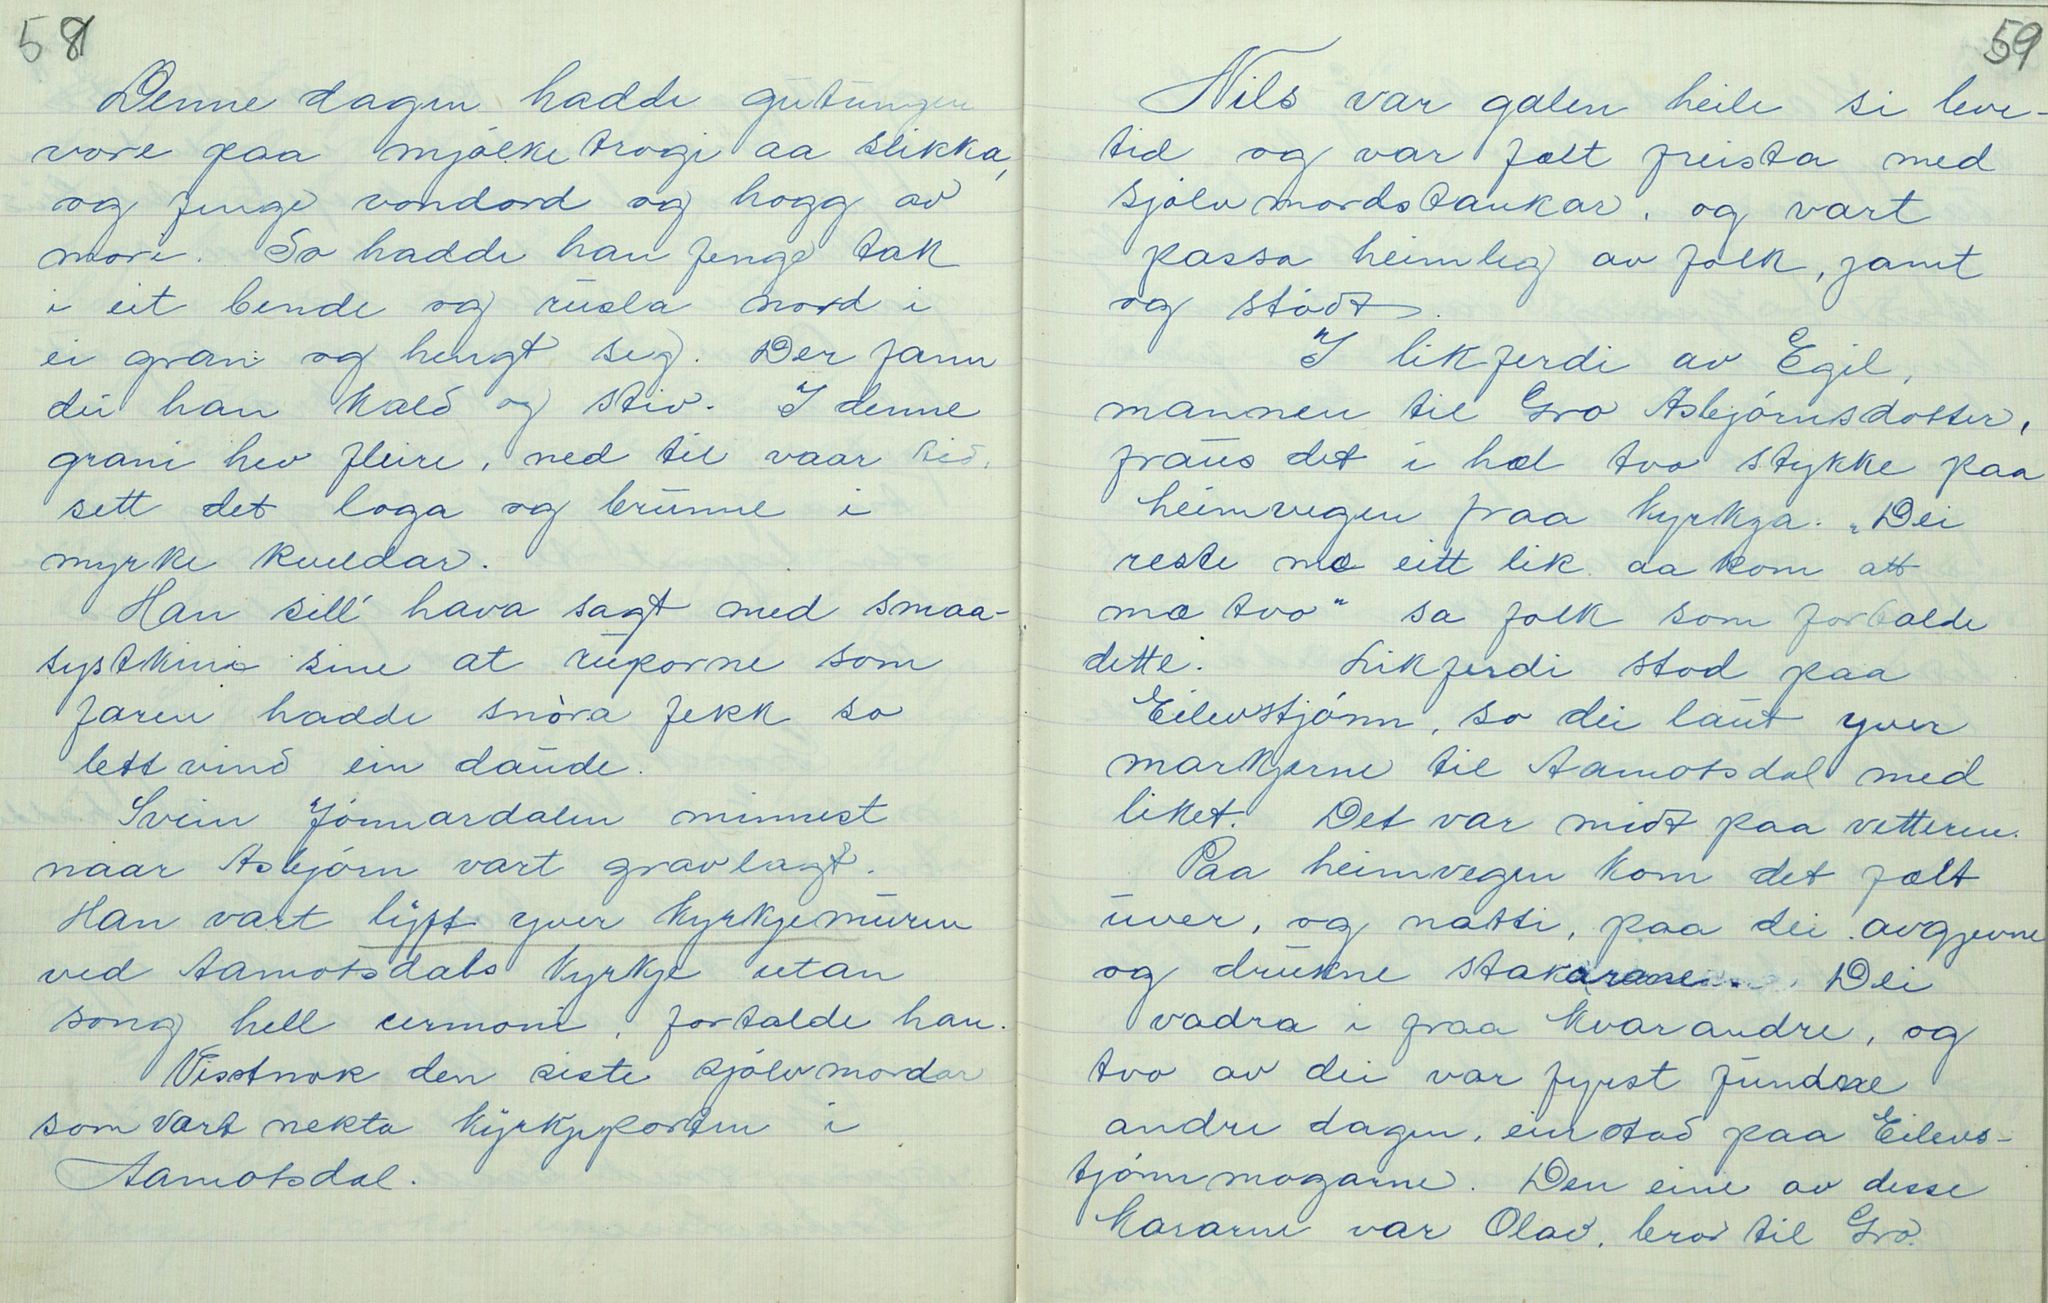 58
Denne dagen hadde gutungen
vore paa mjölketrogi aa slikka,
og fenge vondord og hogg av
mori. So hadde han fenge tak
i eit bende og rusla nord i
ei gran og hengt seg. Der fann
dei han kald og stiv. I denne
grani hev fleire, ned til vaar tid,
sett det loga og brunne i
myrke kveldar.
Han sill' hava sagt med smaa-
systkini sine at rüporne som
faren hadde snöra fekk so
lettvind ein daude.
Svein Jönnardalen minnest
naar Asbjörn vart gravlagt.
Han vart lyft yver kyrkjemuren
ved Aamotsdals kyrkje utan
song hell cermoni, fortalde han.
Visstnok den siste sjölvmordar
som vart nekta kyrkjeporten i
Aamotsdal.
59
Nils var galen heile si leve-
tid og var fælt freista med
sjölvmordstankar, og vart
passa heimleg av folk, jamt
og stödt.
I likferdi av Egil,
mannen til Gro Asbjörnsdotter,
fraus det i hæl tvo stykke paa
heimvegen fraa kyrkja. "Dei
reste mæ eitt lik aa kom att
mæ tvo" sa folk som fortalde
dette. Likferdi stod paa
Eilevstjönn, so dei laut yver
markjerne til Aamotsdal med
liket. Det var midt paa vetteren.
Paa heimvegen kom det fælt
uver, og natti, paa dei avgjevne
og drukne stakarane. Dei
vadra i fraa kvarandre, og
tvo av dei var fyrst fundne
andre dagen, ein stad paa Eilevs-
tjönnmogarne. Den eine av desse
kararne var Olav, bror til Gro.